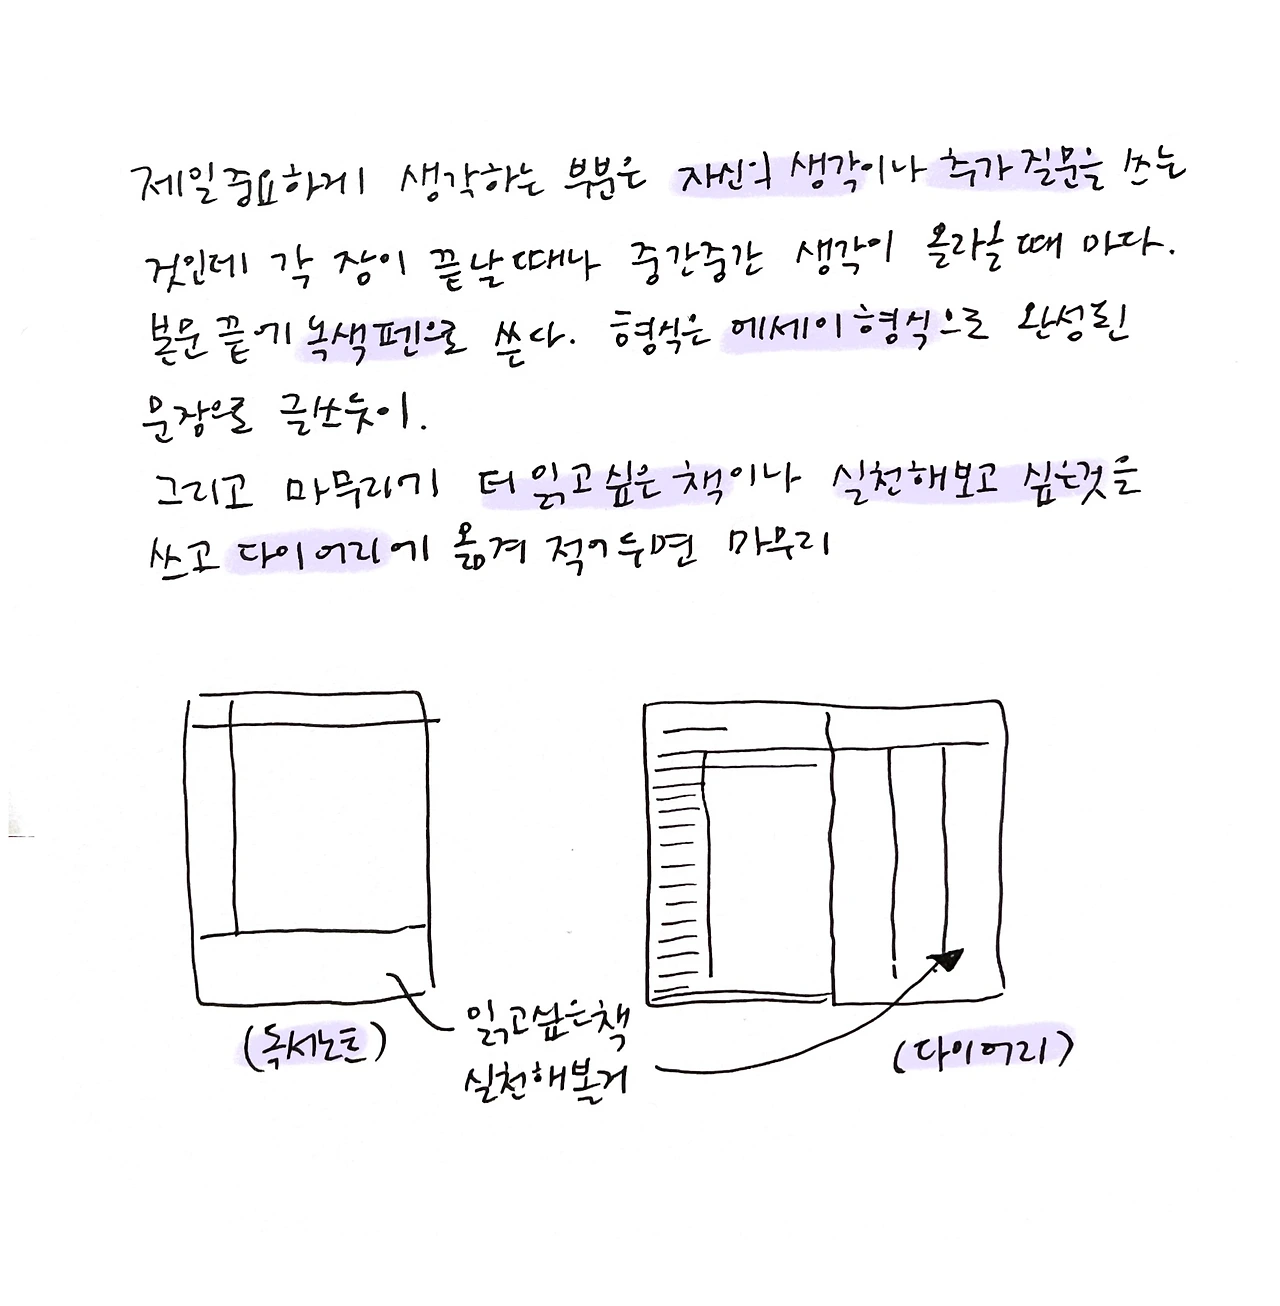 제일중요하게 생각하는 부분은 자신의 생각이나 추가 질문을 쓰는
것인데 각 장이 끝날때나 중간중간 생각이 올라올때 마다.
본문 끝에 녹색펜으로 쓴다. 형식은 에세이형식으로 완성된
문장으로 글쓰듯이.
그리고 마무리기 더 읽고싶은 책이나 실천해보고 싶은것을
쓰고 다이어리에 옮겨 적어두면 마무리
읽고싶은책
실천해볼거
(독서노트)
(다이어리)